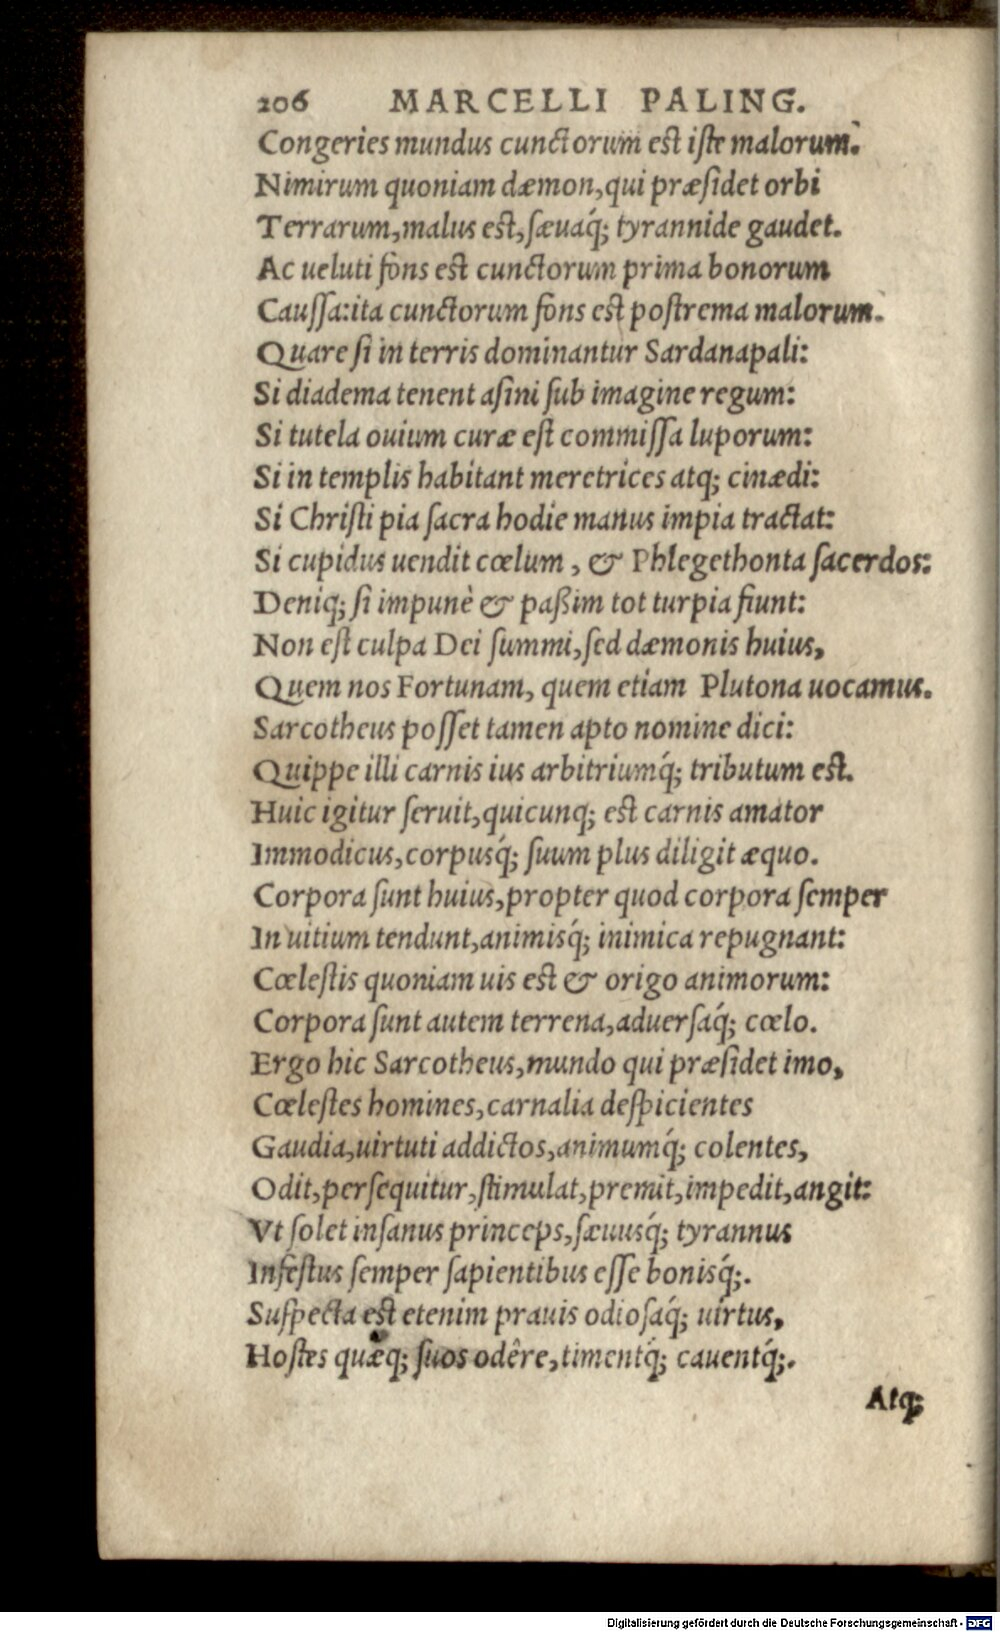 206 MARCELLI PALING.
Congeries mundus cunctorum est iste malorum.
Nimirum quoniam dæmon, qui præsidet orbi
Terrarum, malus est, sæuaq́; tyrannide gaudet.
Ac ueluti fons est cunctorum prima bonorum
Caussa: ita cunctorum fons est postrema malorum.
Quare si in terris dominantur Sardanapali:
Si diadema tenent asini sub imagine regum:
Si tutela ouium curæ est commissa luporum:
Si in templis habitant meretrices atq; cinædi:
Si Christi pia sacra hodie manus impia tractat:
Si cupidus uendit cœlum, & Phlegethonta sacerdos:
Deniq; si impunè & paßim tot turpia fiunt:
Non est culpa Dei summi, sed dæmonis huius,
Quem nos Fortunam, quem etiam Plutona uocamus.
Sarcotheus posset tamen apto nomine dici:
Quippe illi carnis ius arbitriumq́; tributum est.
Huic igitur seruit, quicunq; est carnis amator
Immodicus, corpusq́; suum plus diligit æquo.
Corpora sunt huius, propter quod corpora semper
In uitium tendunt, animisq́; inimica repugnant:
Cœlestis quoniam uis est & origo animorum:
Corpora sunt autem terrena, aduersaq́; cœlo.
Ergo hic Sarcotheus, mundo qui præsidet imo,
Cœlestes homines, carnalia despicientes
Gaudia, uirtuti addictos, animumq́; colentes,
Odit, persequitur, stimulat, premit, impedit, angit:
Vt solet insanus princeps, sæuusq́; tyrannus
Infestus semper sapientibus esse bonisq́;.
Suspecta est etenim prauis odiosaq́; uirtus,
Hostes quæq; suos odêre, timentq́; cauentq́;.
Atq;
Digitalisierung gefördert durch die Deutsche Forschungsgemeinschaft - DFG